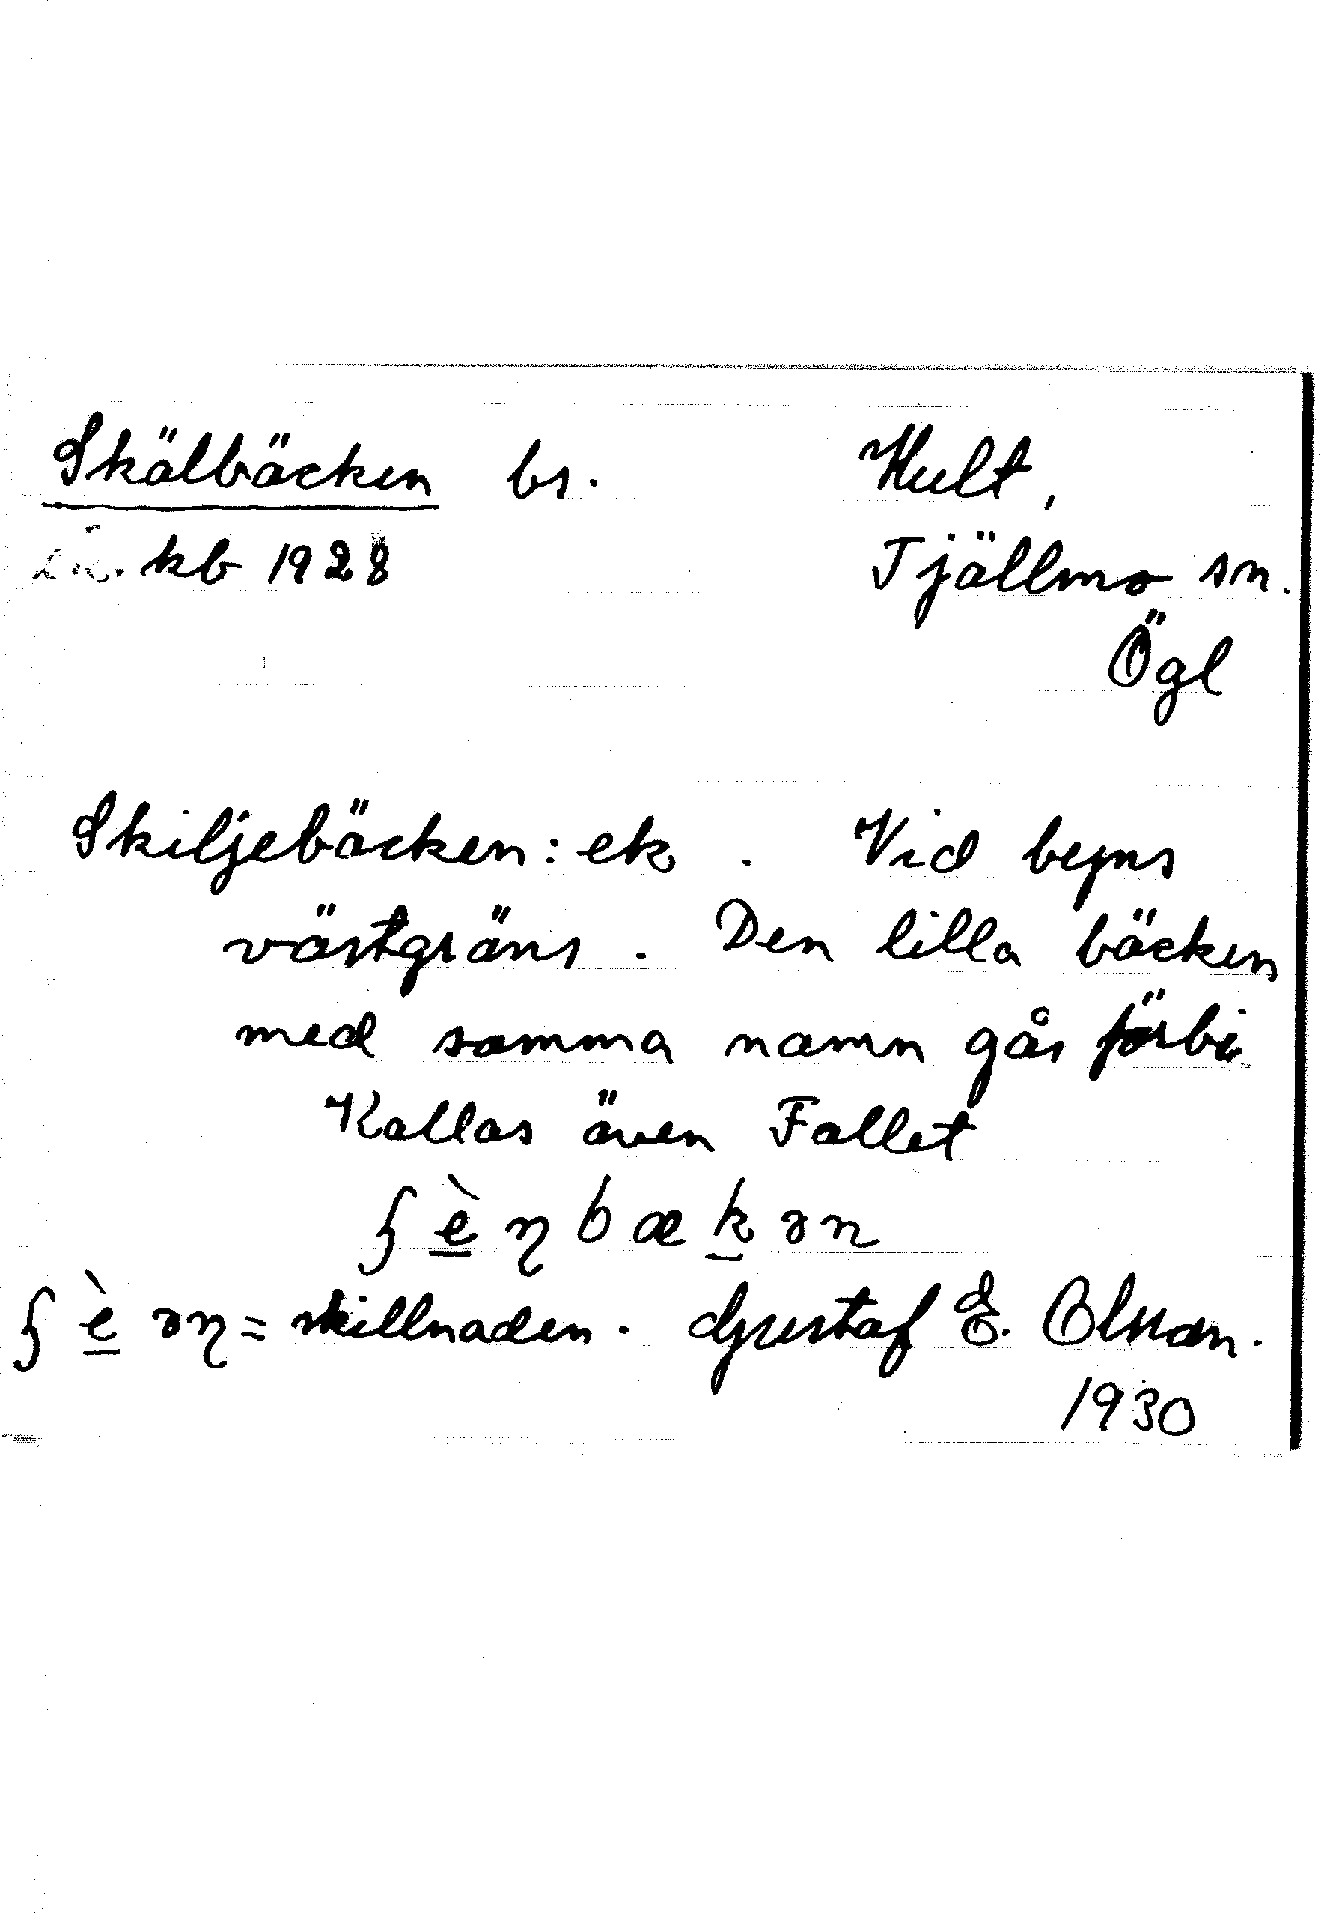 Skälbäcken bs. Hult,
kb 1928 Tjällmo sn.
Ögl
Skiljebäcken: ek . Vid byns
västgräns. Den lilla bäcken
med samma namn går förbi
Kallas även Fallet
ʃ è ŋ b æ k ə n
ʃ è əŋ = skillnaden. Gustaf E. Olsson.
1930